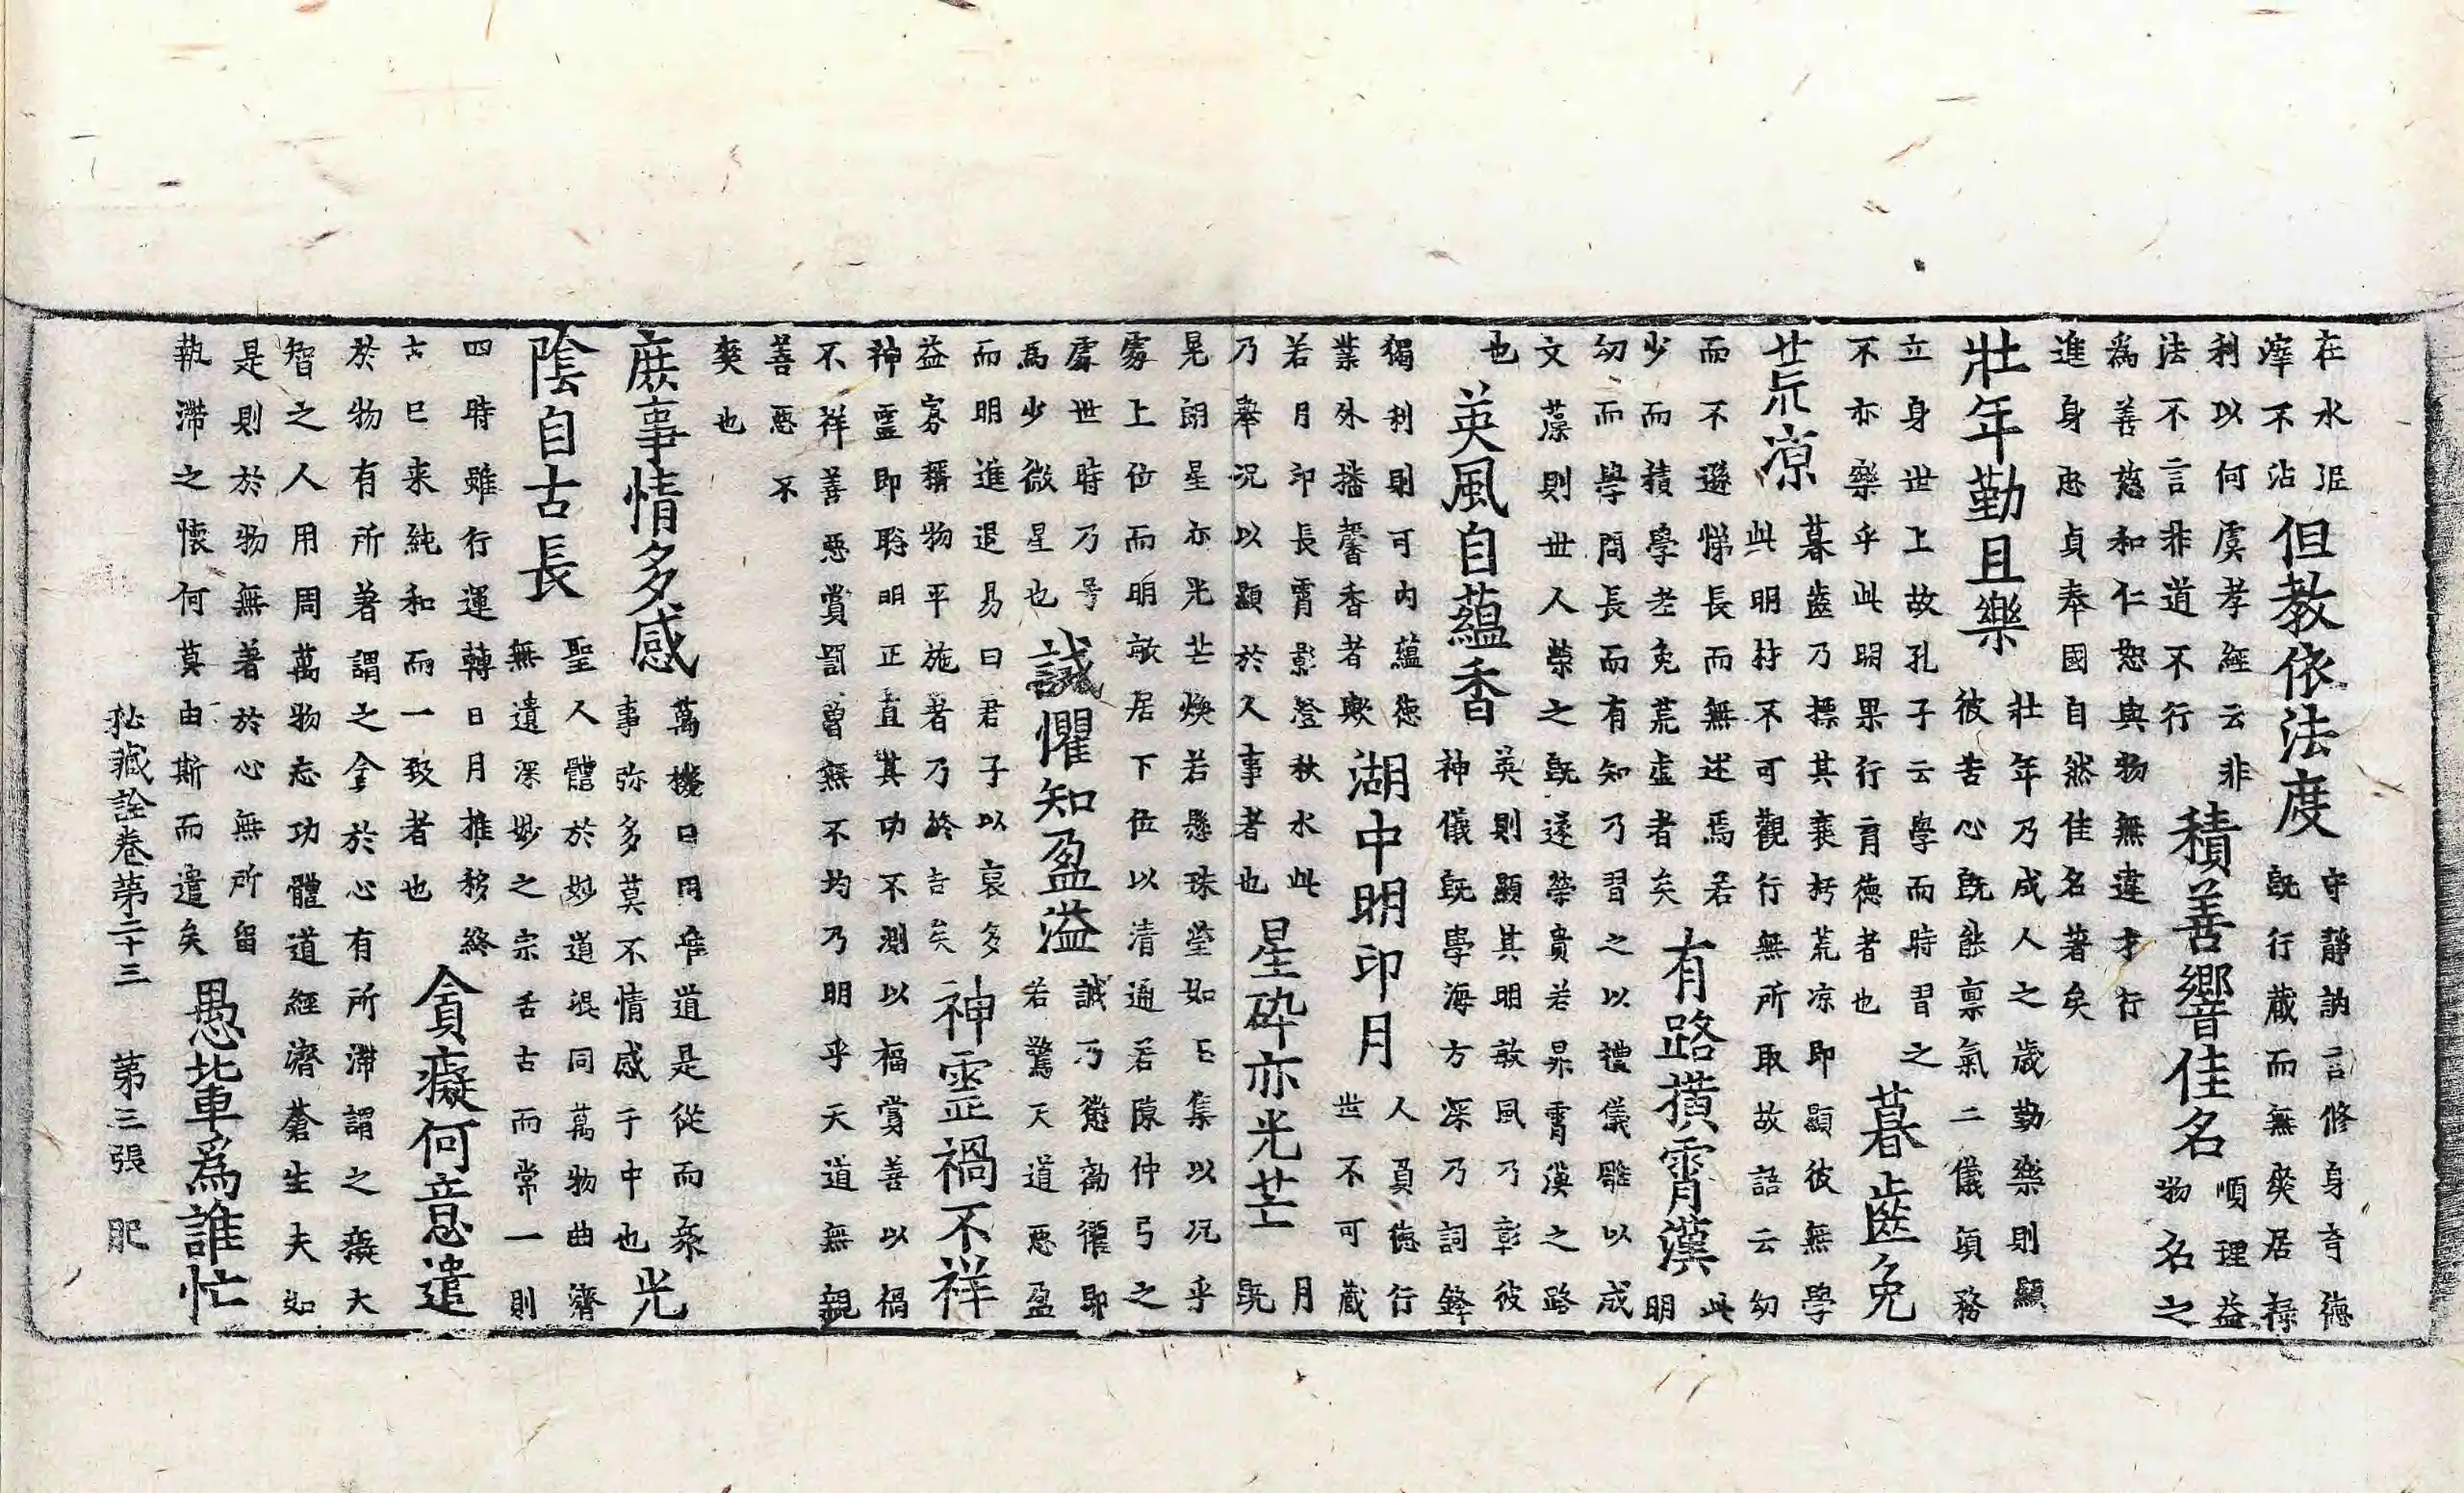 在水泥
滓不沾
但教依法度
守靜訥言修身育德
既行藏而無爽居祿
利以何虞孝經云非
法不言非道不行
積善響佳名
順理益
物名之
爲善慈和仁恕與物無違才行
進身忠貞奉國自然佳名著矣
壯年勤且樂
壯年乃成人之歲勤樂則顯
彼苦心既能稟氣二儀須務
立身世上故孔子云學而時習之
不亦樂乎此明果行育德者也
暮齒免
荒凉
暮齒乃摽其衰朽荒凉即顯彼無學
此明時不可觀行無所取故語云幼
而不遜悌長而無述焉若
少而積學老免荒虛者矣
有路撗霄漢
此
明
幼而學問長而有知乃習之以禮儀雕以成
文藻則世人榮之既遂榮貴若昇霄漢之路
也
英風自蘊香
英則顯其明敏風乃彰彼
神儀既學海方深乃詞鋒
獨利則可内蘊德
業外播馨香者歟
湖中明印月
人負德行
世不可藏
若月印長霄影澄秋水此
乃舉況以顯於人事者也
星碎亦光芒
月
既
晃朗星亦光芒煥若懸珠瑩如玉集以況乎
處上位而明敏居下位以清通若陳仲弓之
處世時乃号
爲少微星也
誡懼知盈溢
誡乃懲勸懼即
若驚天道惡盈
而明進退易曰君子以裒多
益寡稱物平施著乃終吉矣
神靈禍不祥
神靈即聡明正直其功不測以福賞善以禍
不祥善惡賞罰曾無不均乃明乎天道無親
善惡不
爽也
庶事情多感
萬機日用唯道是從而衆
事弥多莫不情感于中也
光
陰自古長
聖人體於妙道混同萬物曲濟
無遺深妙之宗舌古而常一則
四時雖行運轉日月推移終
古已来純和而一致者也
貪癡何意遣
於物有所著謂之貪於心有所滯謂之癡大
智之人用周萬物志功體道經濟蒼生夫如
是則於物無著於心無所留
執滯之懷何莫由斯而遣矣
愚輩爲誰忙
秘藏詮卷第二十三 第三張 肥